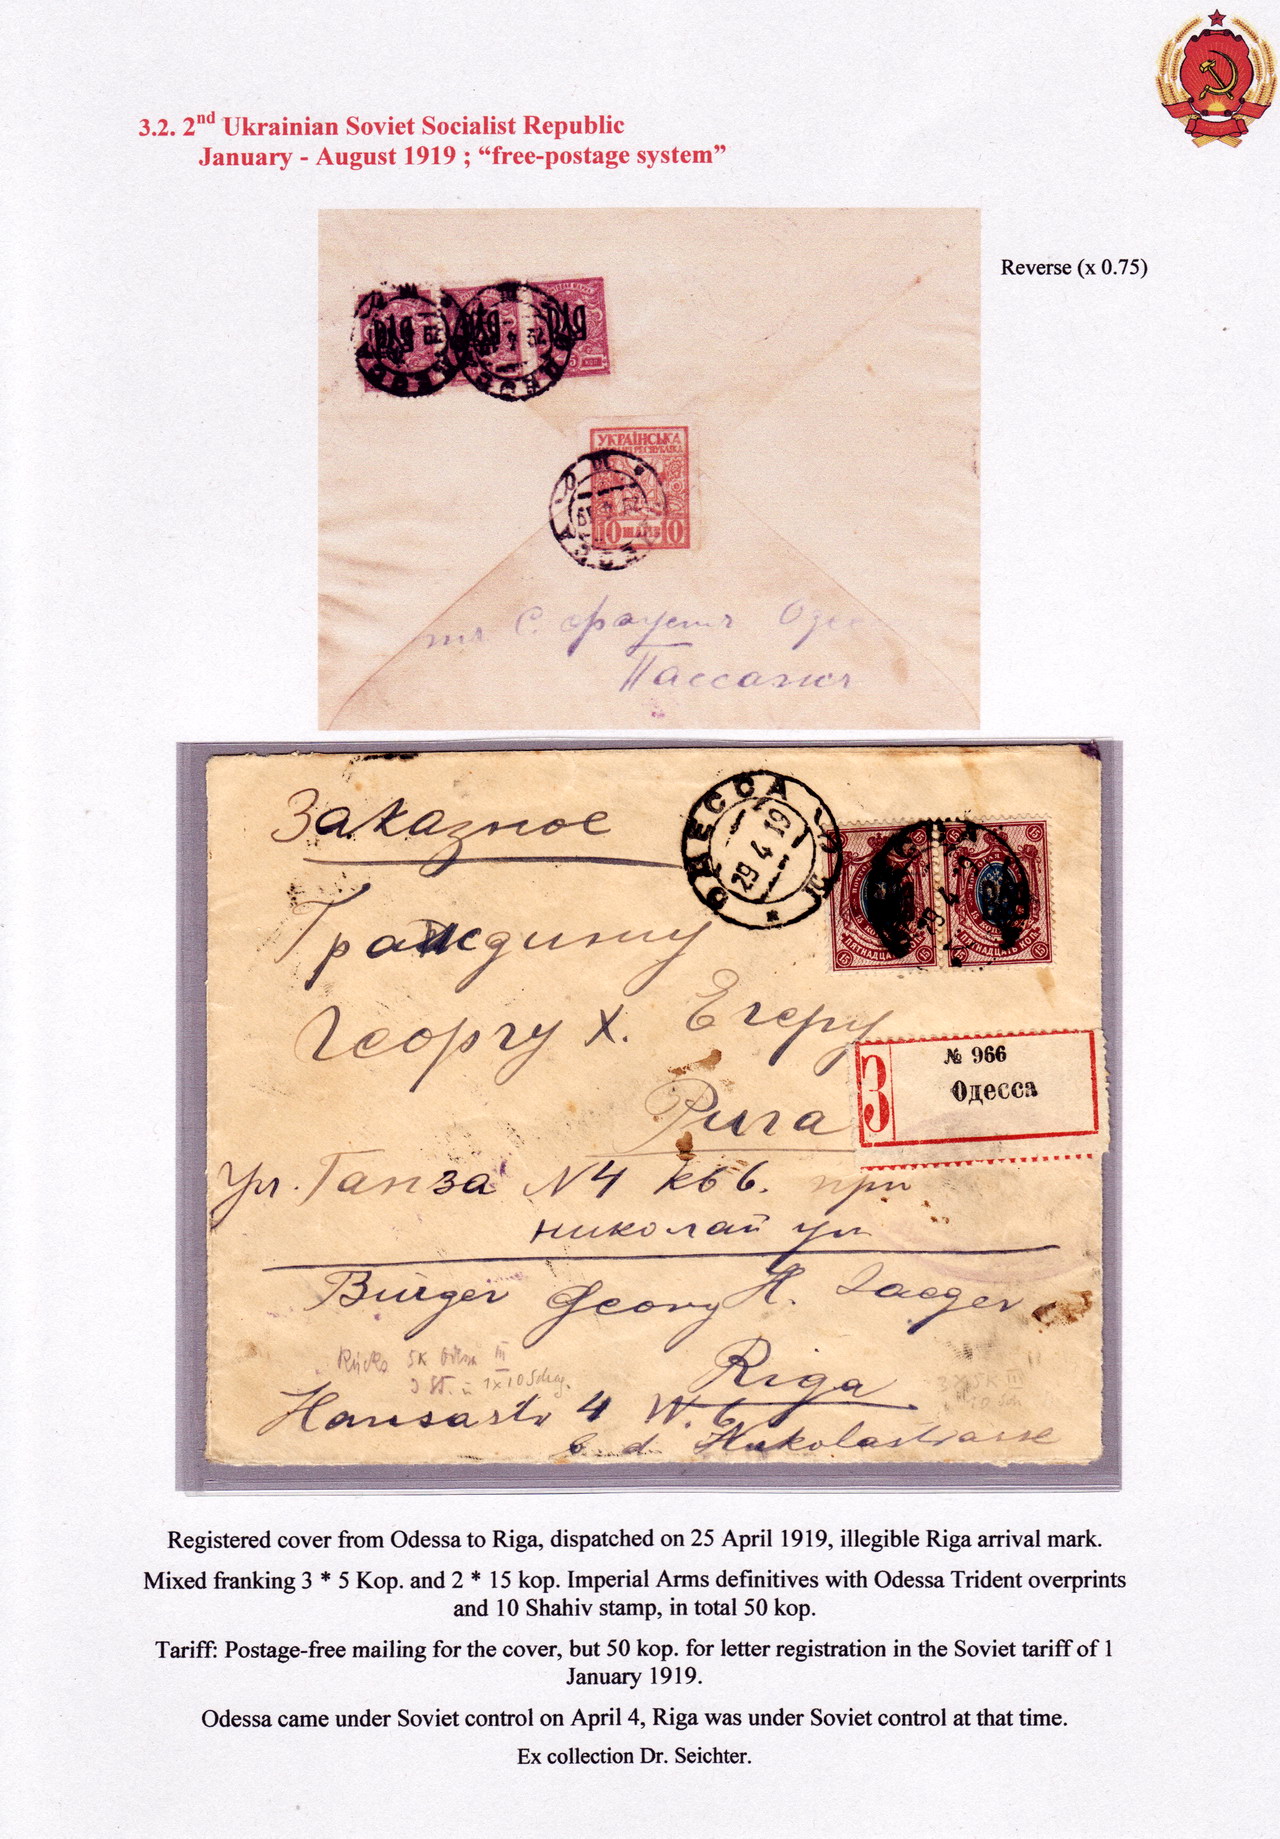 3.2. 2nd Ukrainian Soviet Socialist Republic
January - August 1919 ; “free-postage system”
Reverse (x 0.75)
УКРАЇНСЬКА
10 10
С.
Пассаж
Заказное
ОДЕССА
29 4 19
15 15
ПЯТНАДЦАТЬ КОП
Гражданину
Георгу Х. Егеру
Рига
З
№ 966
Одесса
ул. Ганза N4 кв 6. при
николай ул
Bürger Georg H. Jaeger
Riga
4 W. 6
b d
Registered cover from Odessa to Riga, dispatched on 25 April 1919, illegible Riga arrival mark.
Mixed franking 3 * 5 Kop. and 2 * 15 kop. Imperial Arms definitives with Odessa Trident overprints
and 10 Shahiv stamp, in total 50 kop.
Tariff: Postage-free mailing for the cover, but 50 kop. for letter registration in the Soviet tariff of 1
January 1919.
Odessa came under Soviet control on April 4, Riga was under Soviet control at that time.
Ex collection Dr. Seichter.